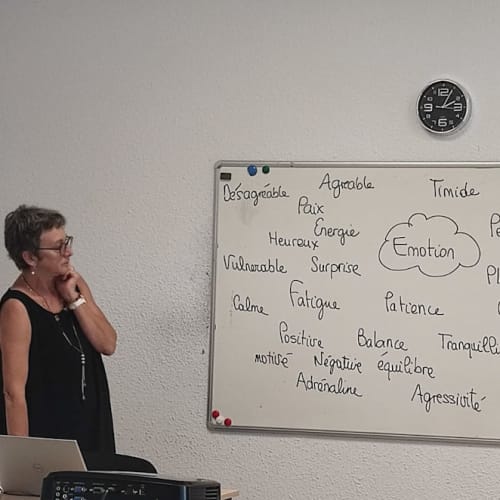 12
3
6
9
Désagréable Agréable Timide
Paix
Énergie
Heureux
Emotion
Vulnerable Surprise
Calme Fatigue Patience
Positive Balance
motivé Négative équilibre
Adrénaline Agressivité